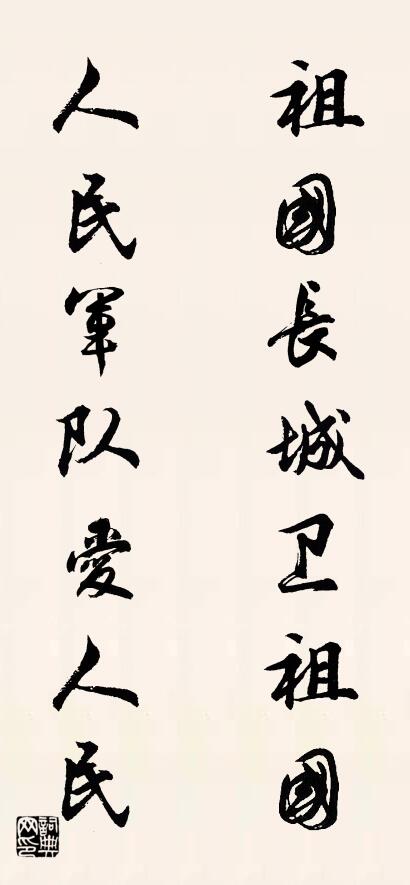 祖國長城卫祖國
人民軍队愛人民
詞典网印